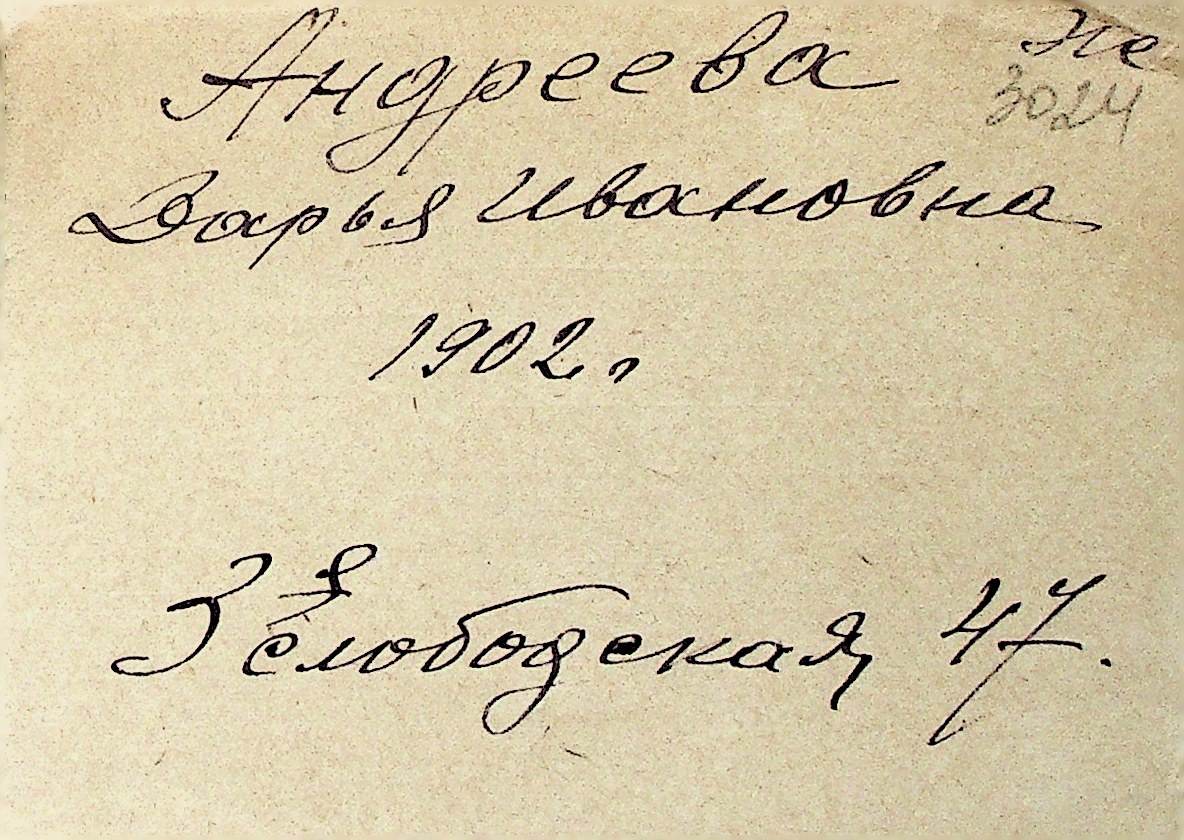 Андреева Не
3024
Дарья Ивановна
1902 г
3я слободская, 47.